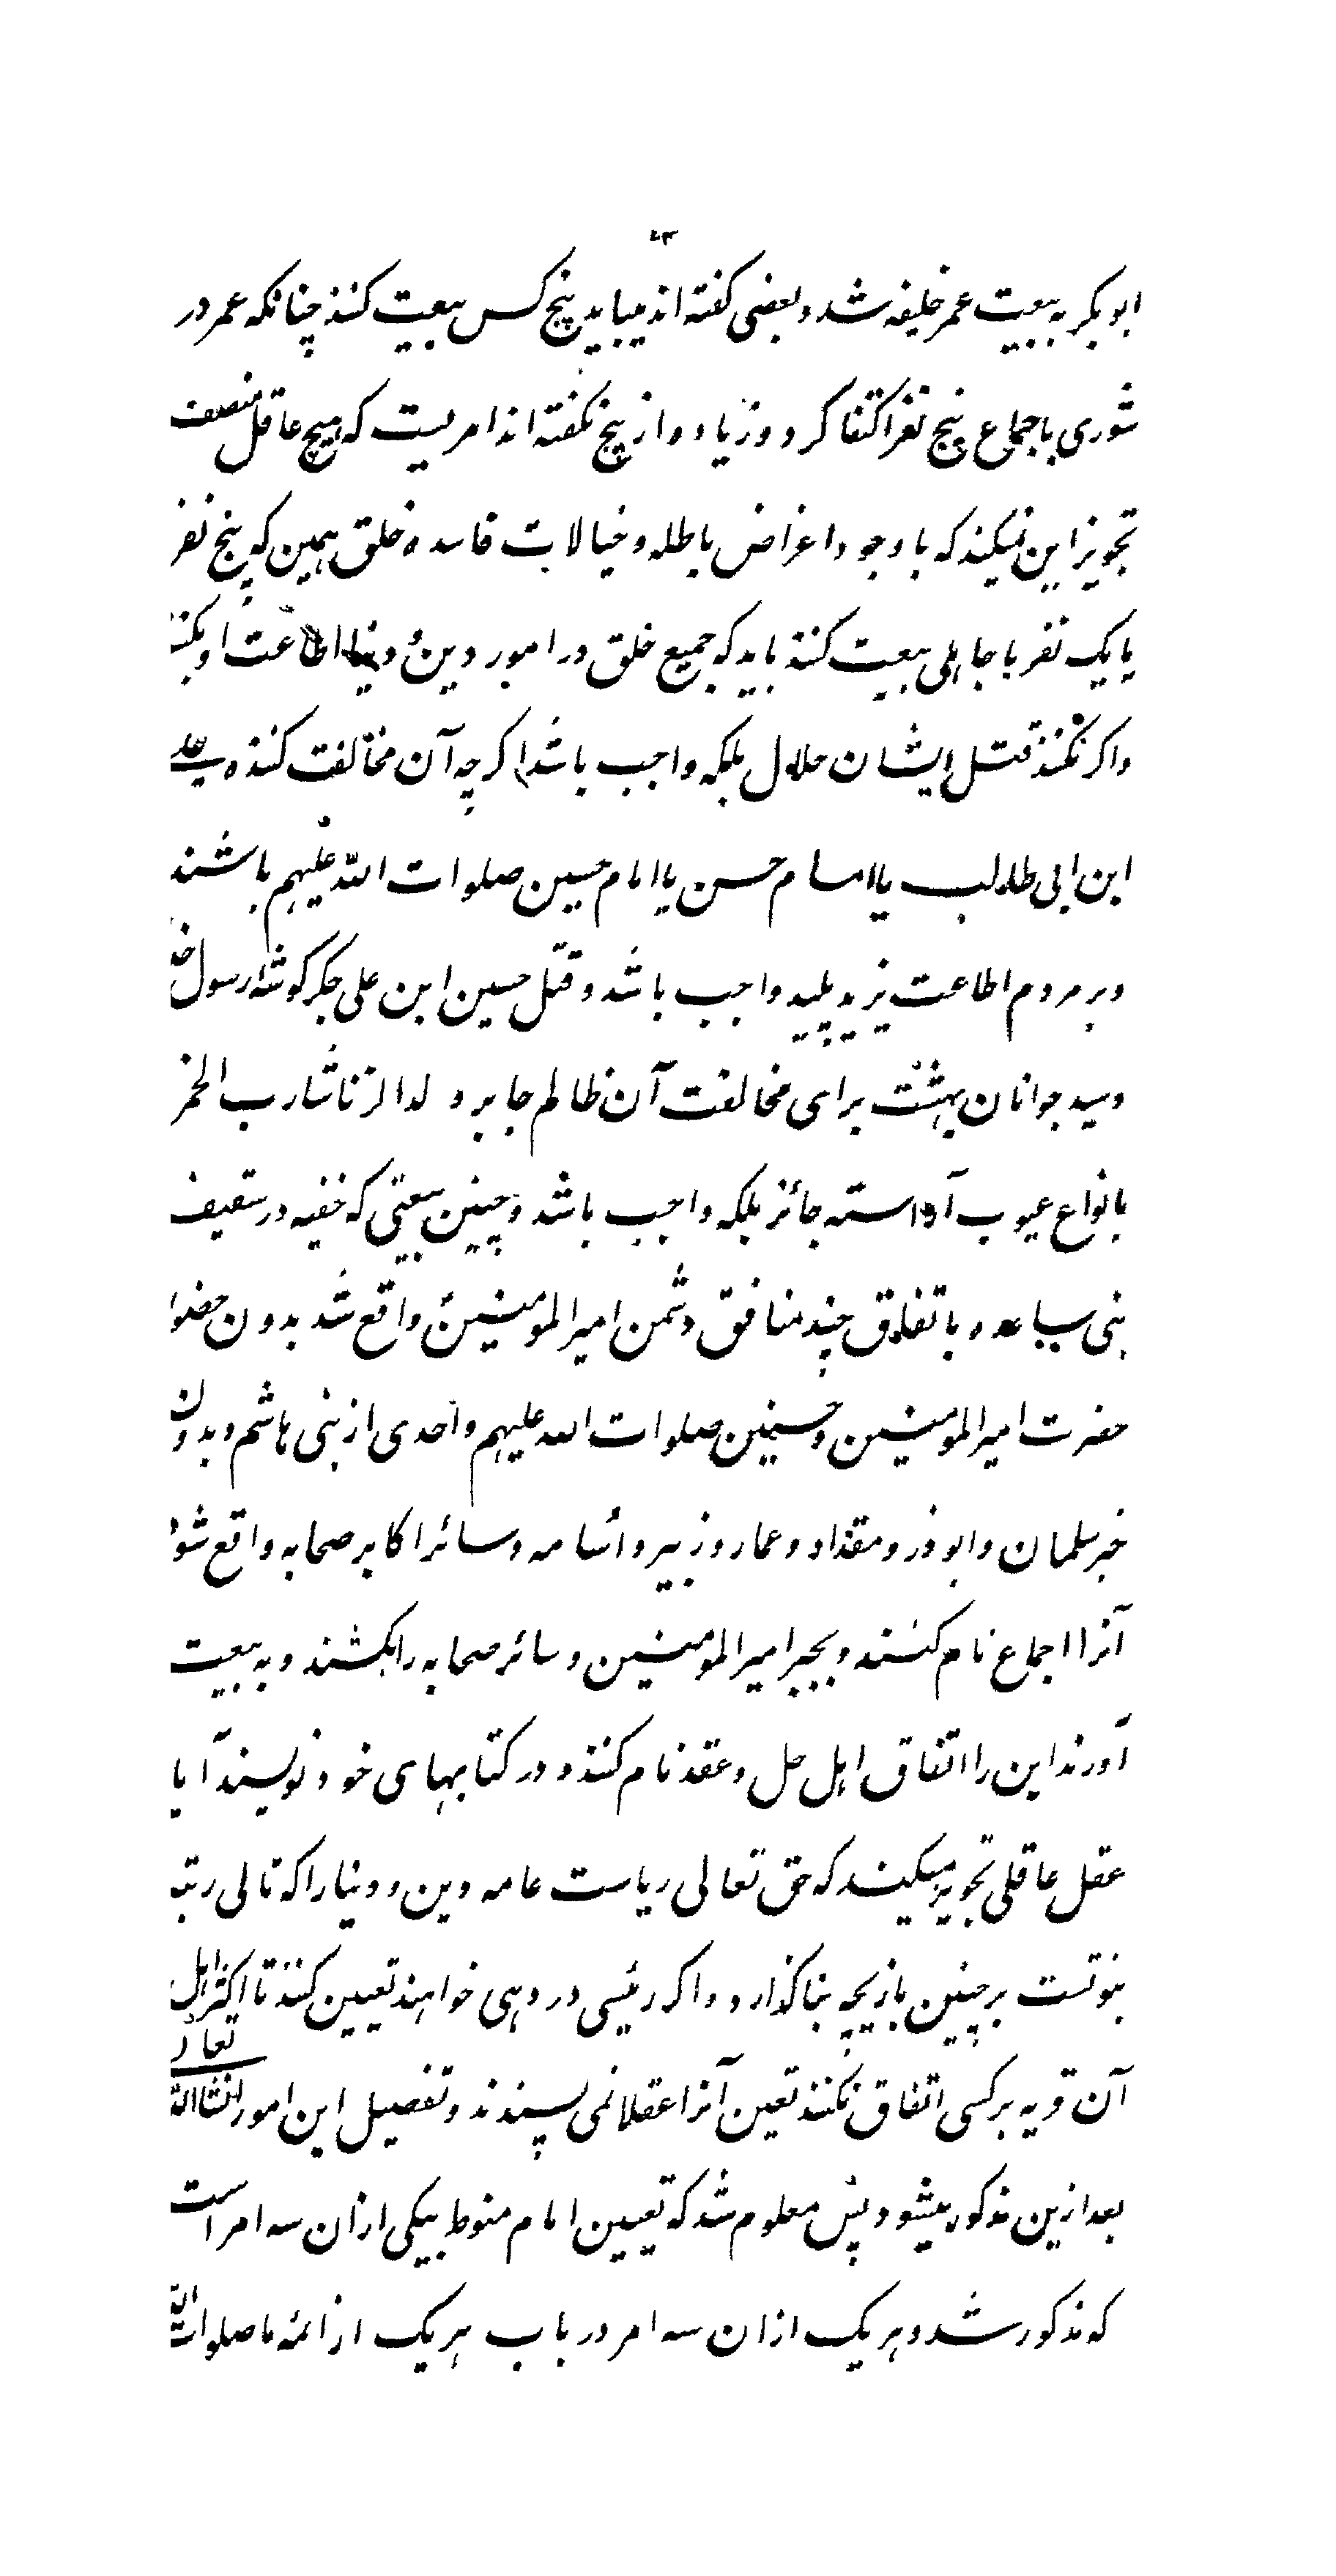 ۴۳
ابوبکر به بیعت عمر خلیفه شد و بعضی کفته اند میباید پنج کس بیعت کنند چنانکه عمر در
شوری باجماع پنج نفر اکتفا کرد و زیاده از پنج نکفته اند امریست که هیچ عاقل منصف
تجویز این نمیکند که با وجود اعراض باطله و خیالات فاسده خلق همین که پنج نفر
یا یک نفر با جاهلی بیعت کنند باید که جمیع خلق در امور دین و دنیا اطاعت او بکنند
واکر نکنند قتل ایشان حلال بلکه واجب باشد اکرچه آن مخالفت کننده علی
ابن ابی طالب یا امام حسن یا امام حسین صلوات الله علیهم باشند
وبر مردم اطاعت یزید پلید واجب باشد و قتل حسین ابن علی جکر کوشه رسول خدا
وسید جوانان بهشت برای مخالفت آن ظالم جابر ولدالزنا شارب الخمر
بانواع عیوب آراسته جائز بلکه واجب باشد و چنین بیعتی که خفیه در سقیفه
بنی ساعده باتفاق چند منافق دشمن امیرالمؤمنین واقع شد بدون حضور
حضرت امیرالمومنین و حسنین صلوات الله علیهم واحدی از بنی هاشم و بدون
خبر سلمان و ابوذر و مقداد و عمار و زبیر و اسامه و سائر اکابر صحابه واقع شود
آنرا اجماع نام کنند و بجبر امیرالمومنین و سائر صحابه را بکشند و به بیعت
آورند این را اتفاق اهل حل و عقد نام کنند و در کتابهای خود نویسند آیا
عقل عاقلی تجویز میکند که حق تعالی ریاست عامه دین و دنیا را که تالی رتبه
نبوتست بر چنین بازیچه بنا کذارد و اکر رئیسی در دهی خواهند تعیین کنند تا اکثر اهل
آن قریه بر کسی اتفاق نکنند تعین آنرا عقلا نمی پسندند و تفصیل این امور انشاالله تعالی
بعد ازین مذکور میشود پس معلوم شد که تعیین امام منوط بیکی ازان سه امر است
که مذکور شد و هریک ازان سه امر در باب هریک از ائمه ما صلوات الله